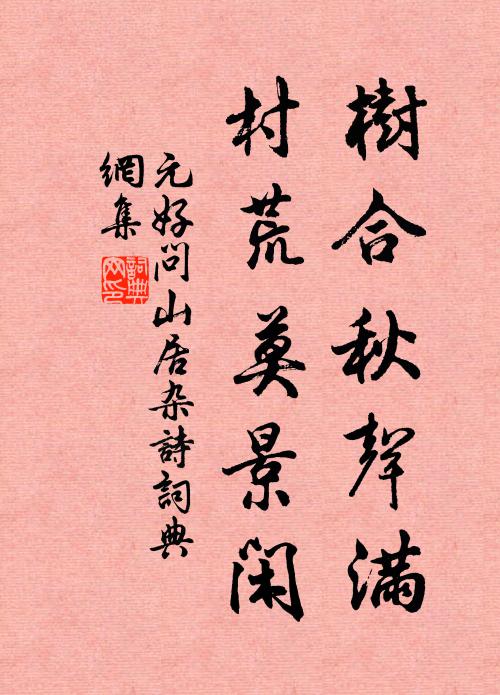 樹合秋聲滿
村荒莫景閑
元好问山居杂詩詞典
網集
詞典
网印